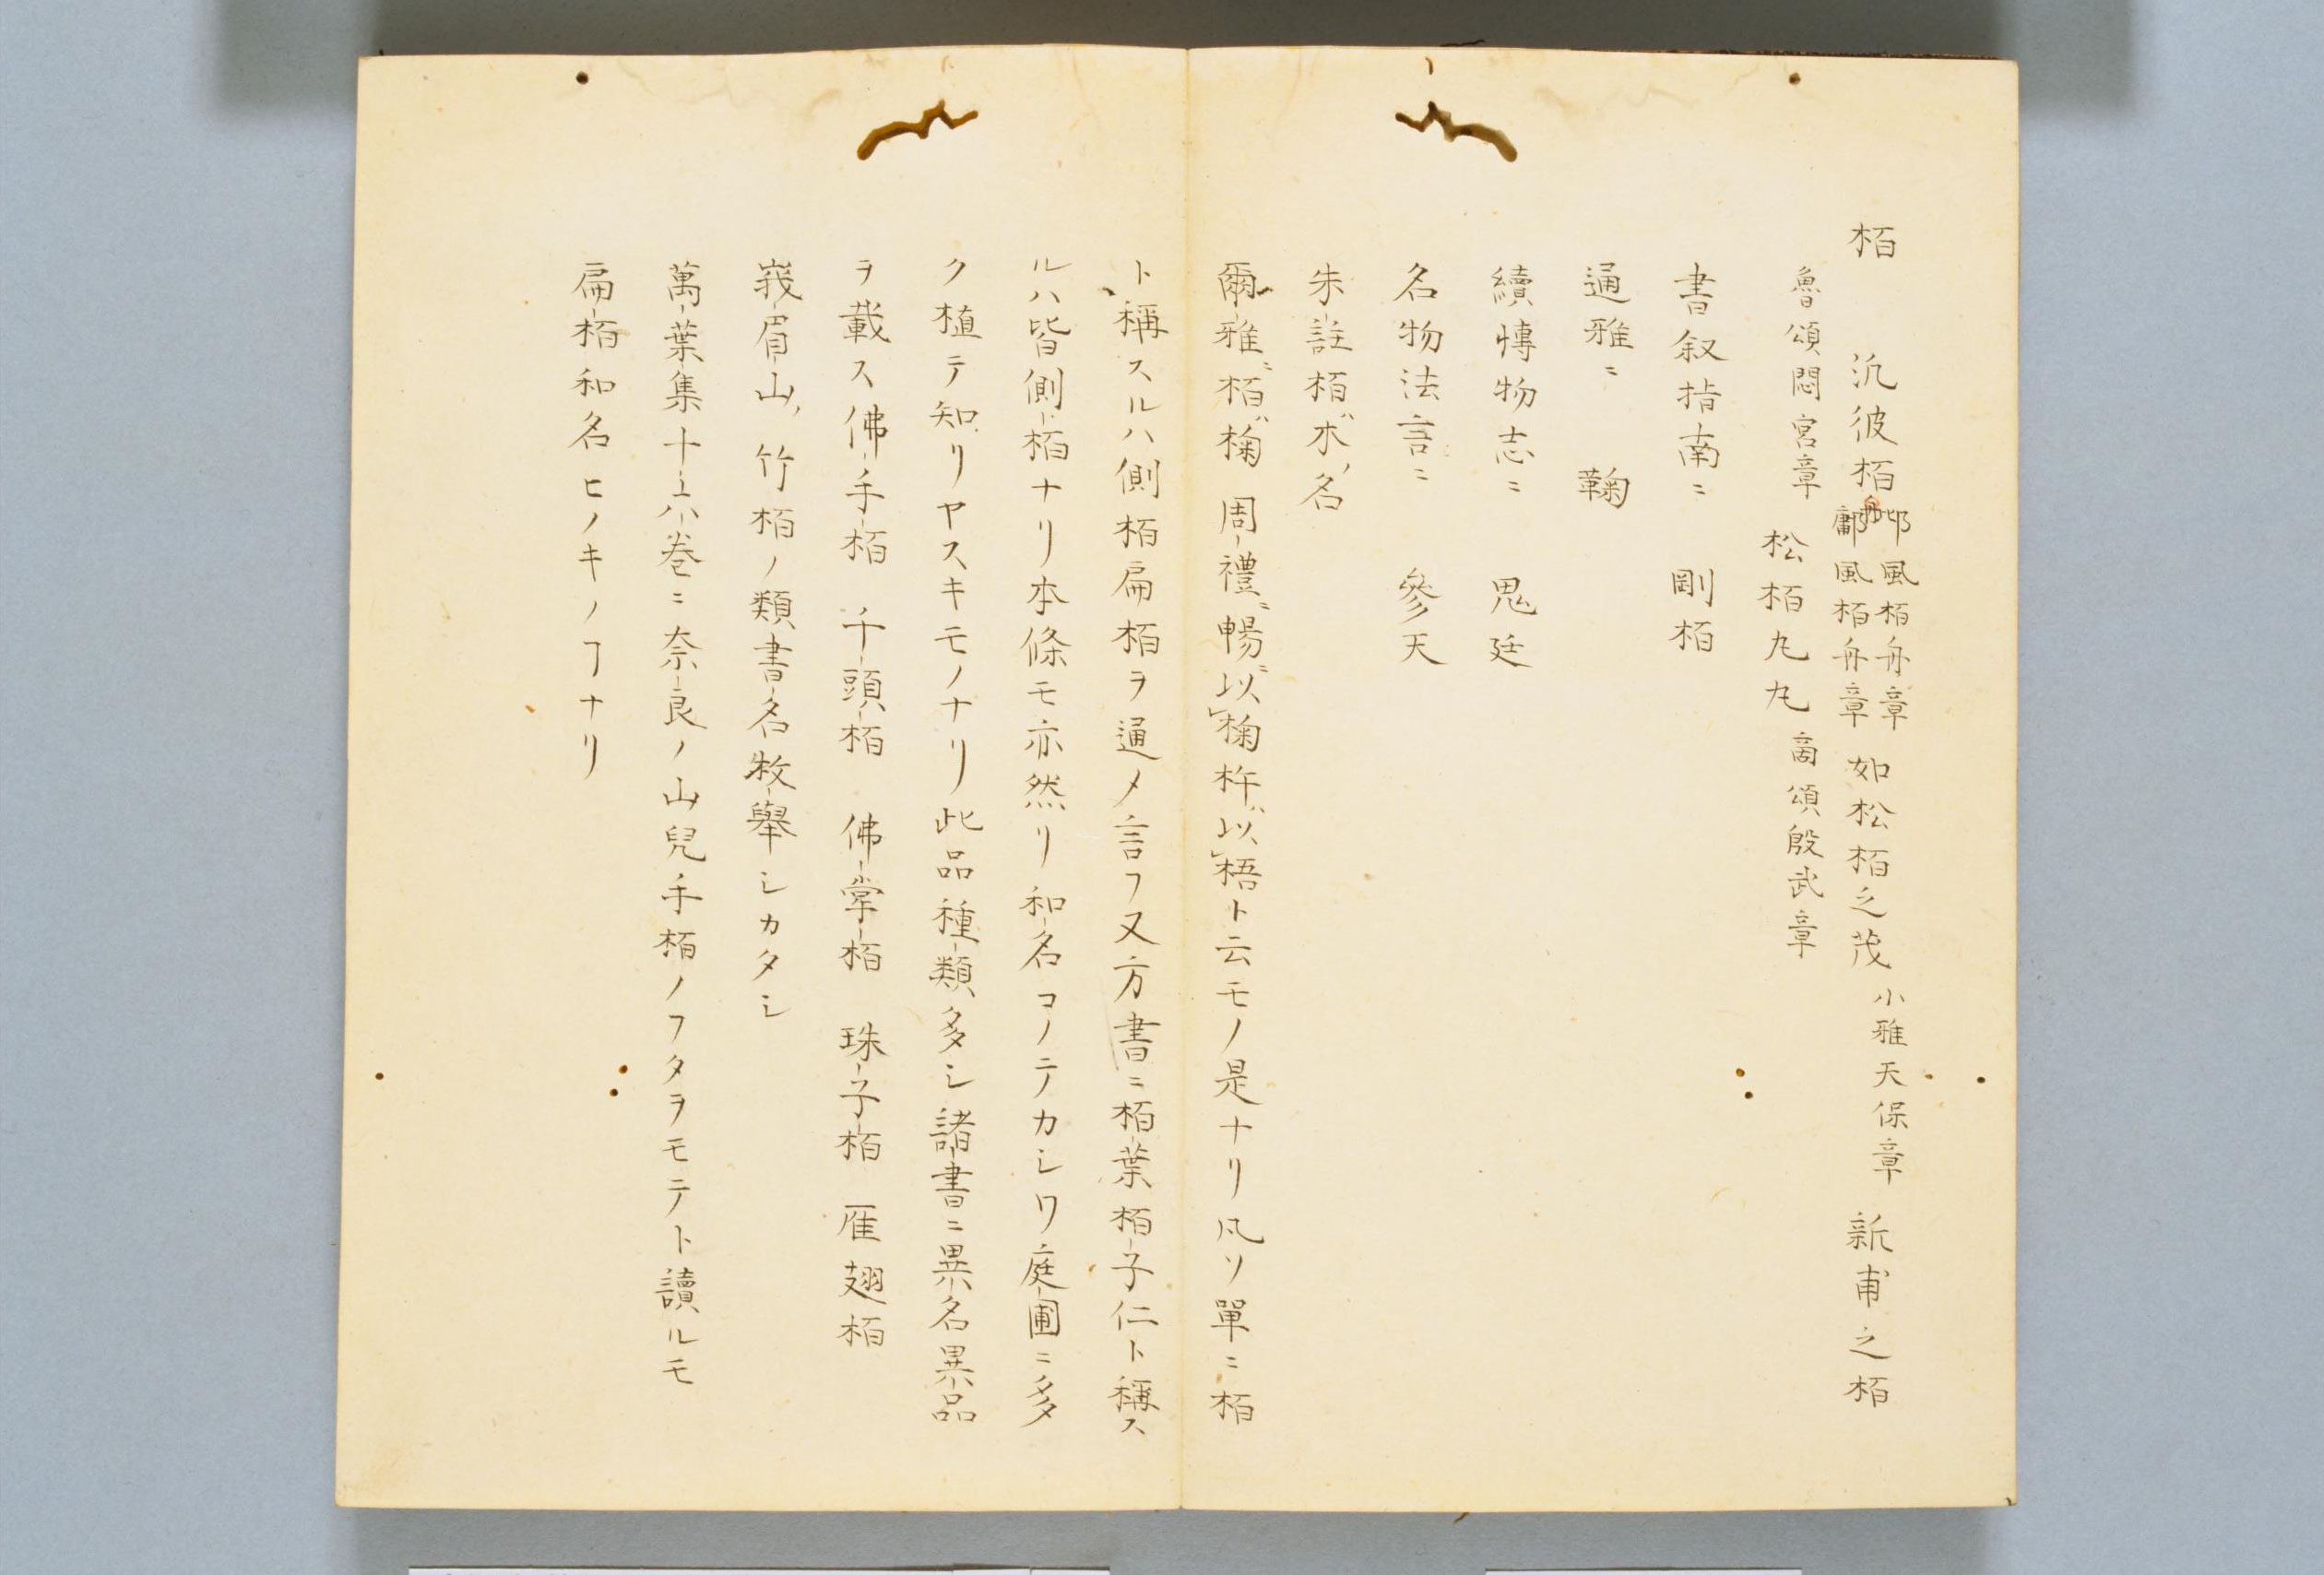 栢　汎彼栢舟邶風栢舟章鄘風栢舟章　如松栢之茂小雅天保章　新甫之栢
魯頌閟宮章　松栢丸丸商頌殷武章
書叙指南ニ　剛栢
通雅ニ　鞠
續博物志ニ　鬼廷
名物法言ニ　參天
朱註栢ハ木ノ名
爾雅ニ栢ハ椈周禮ニ暢ニ以椈杵ハ以梧ト云モノ是ナリ凡ソ單ニ栢
ト稱スルハ側栢扁栢ヲ通メ言フ又方書ニ栢葉栢子仁ト稱ス
ルハ皆側栢ナリ本條モ亦然リ和名コノテカシワ庭圃ニ多
ク植テ知リヤスキモノナリ此品種類多シ諸書ニ異名異品
ヲ載ス佛手栢　千頭栢　佛掌栢　珠子栢　雁翅栢
峩眉山ノ竹栢ノ類書名枚舉シカタシ
萬葉集十六巻ニ奈良ノ山兒手栢ノフタヲモテト讀ルモ
扁栢和名ヒノキノヿナリ